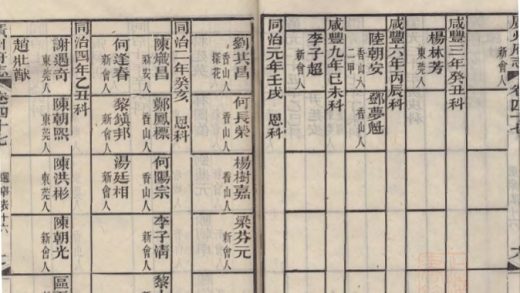 廣州府志 卷四十七
咸豐三年癸丑科
楊林芳 香山人
咸豐六年丙辰科
陸朝安 香山人 二甲 鄧夢魁 新會人
咸豐九年己未科
李子超 香山人
同治元年壬戌 恩科
劉其昌 香山人 探花 何長榮 香山人 楊樹嘉 香山人 梁芬元 新會人
同治二年癸亥 恩科
陳熾昌 新安人 鄭鳳標 香山人 何陽宗 香山人 李子清 新會人 黎
何逢春 新會人 黎鎮邦 新會人 湯廷相 新會人
同治四年乙丑科
謝遇奇 東莞人 陳朝熙 東莞人 陳洪彬 東莞人 陳朝光 新會人 區
趙壯猷
廣州府志 卷四十七 選舉表十六